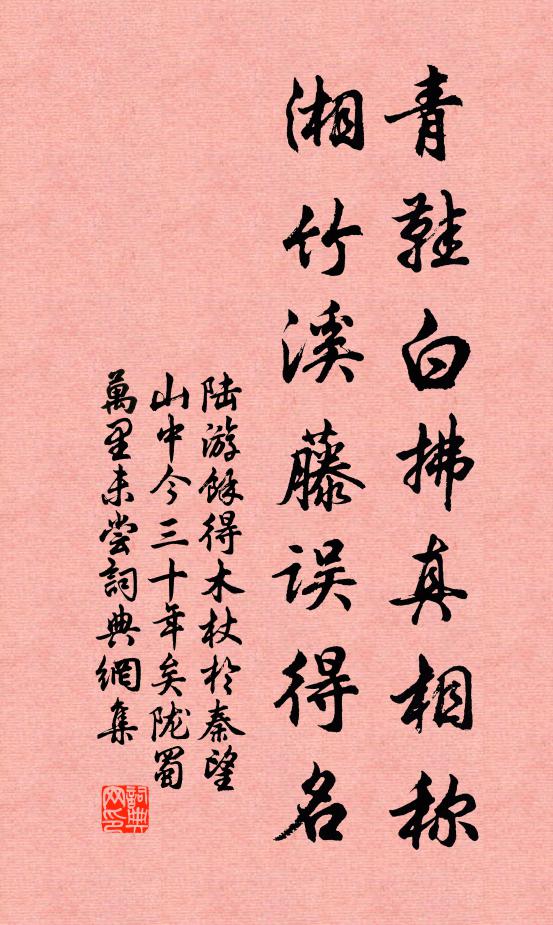 青鞋白拂真相称
湘竹溪藤误得名
陆游馀得木杖於秦望
山中今三十年矣陇蜀
萬里未尝詞典網集
詞典网印